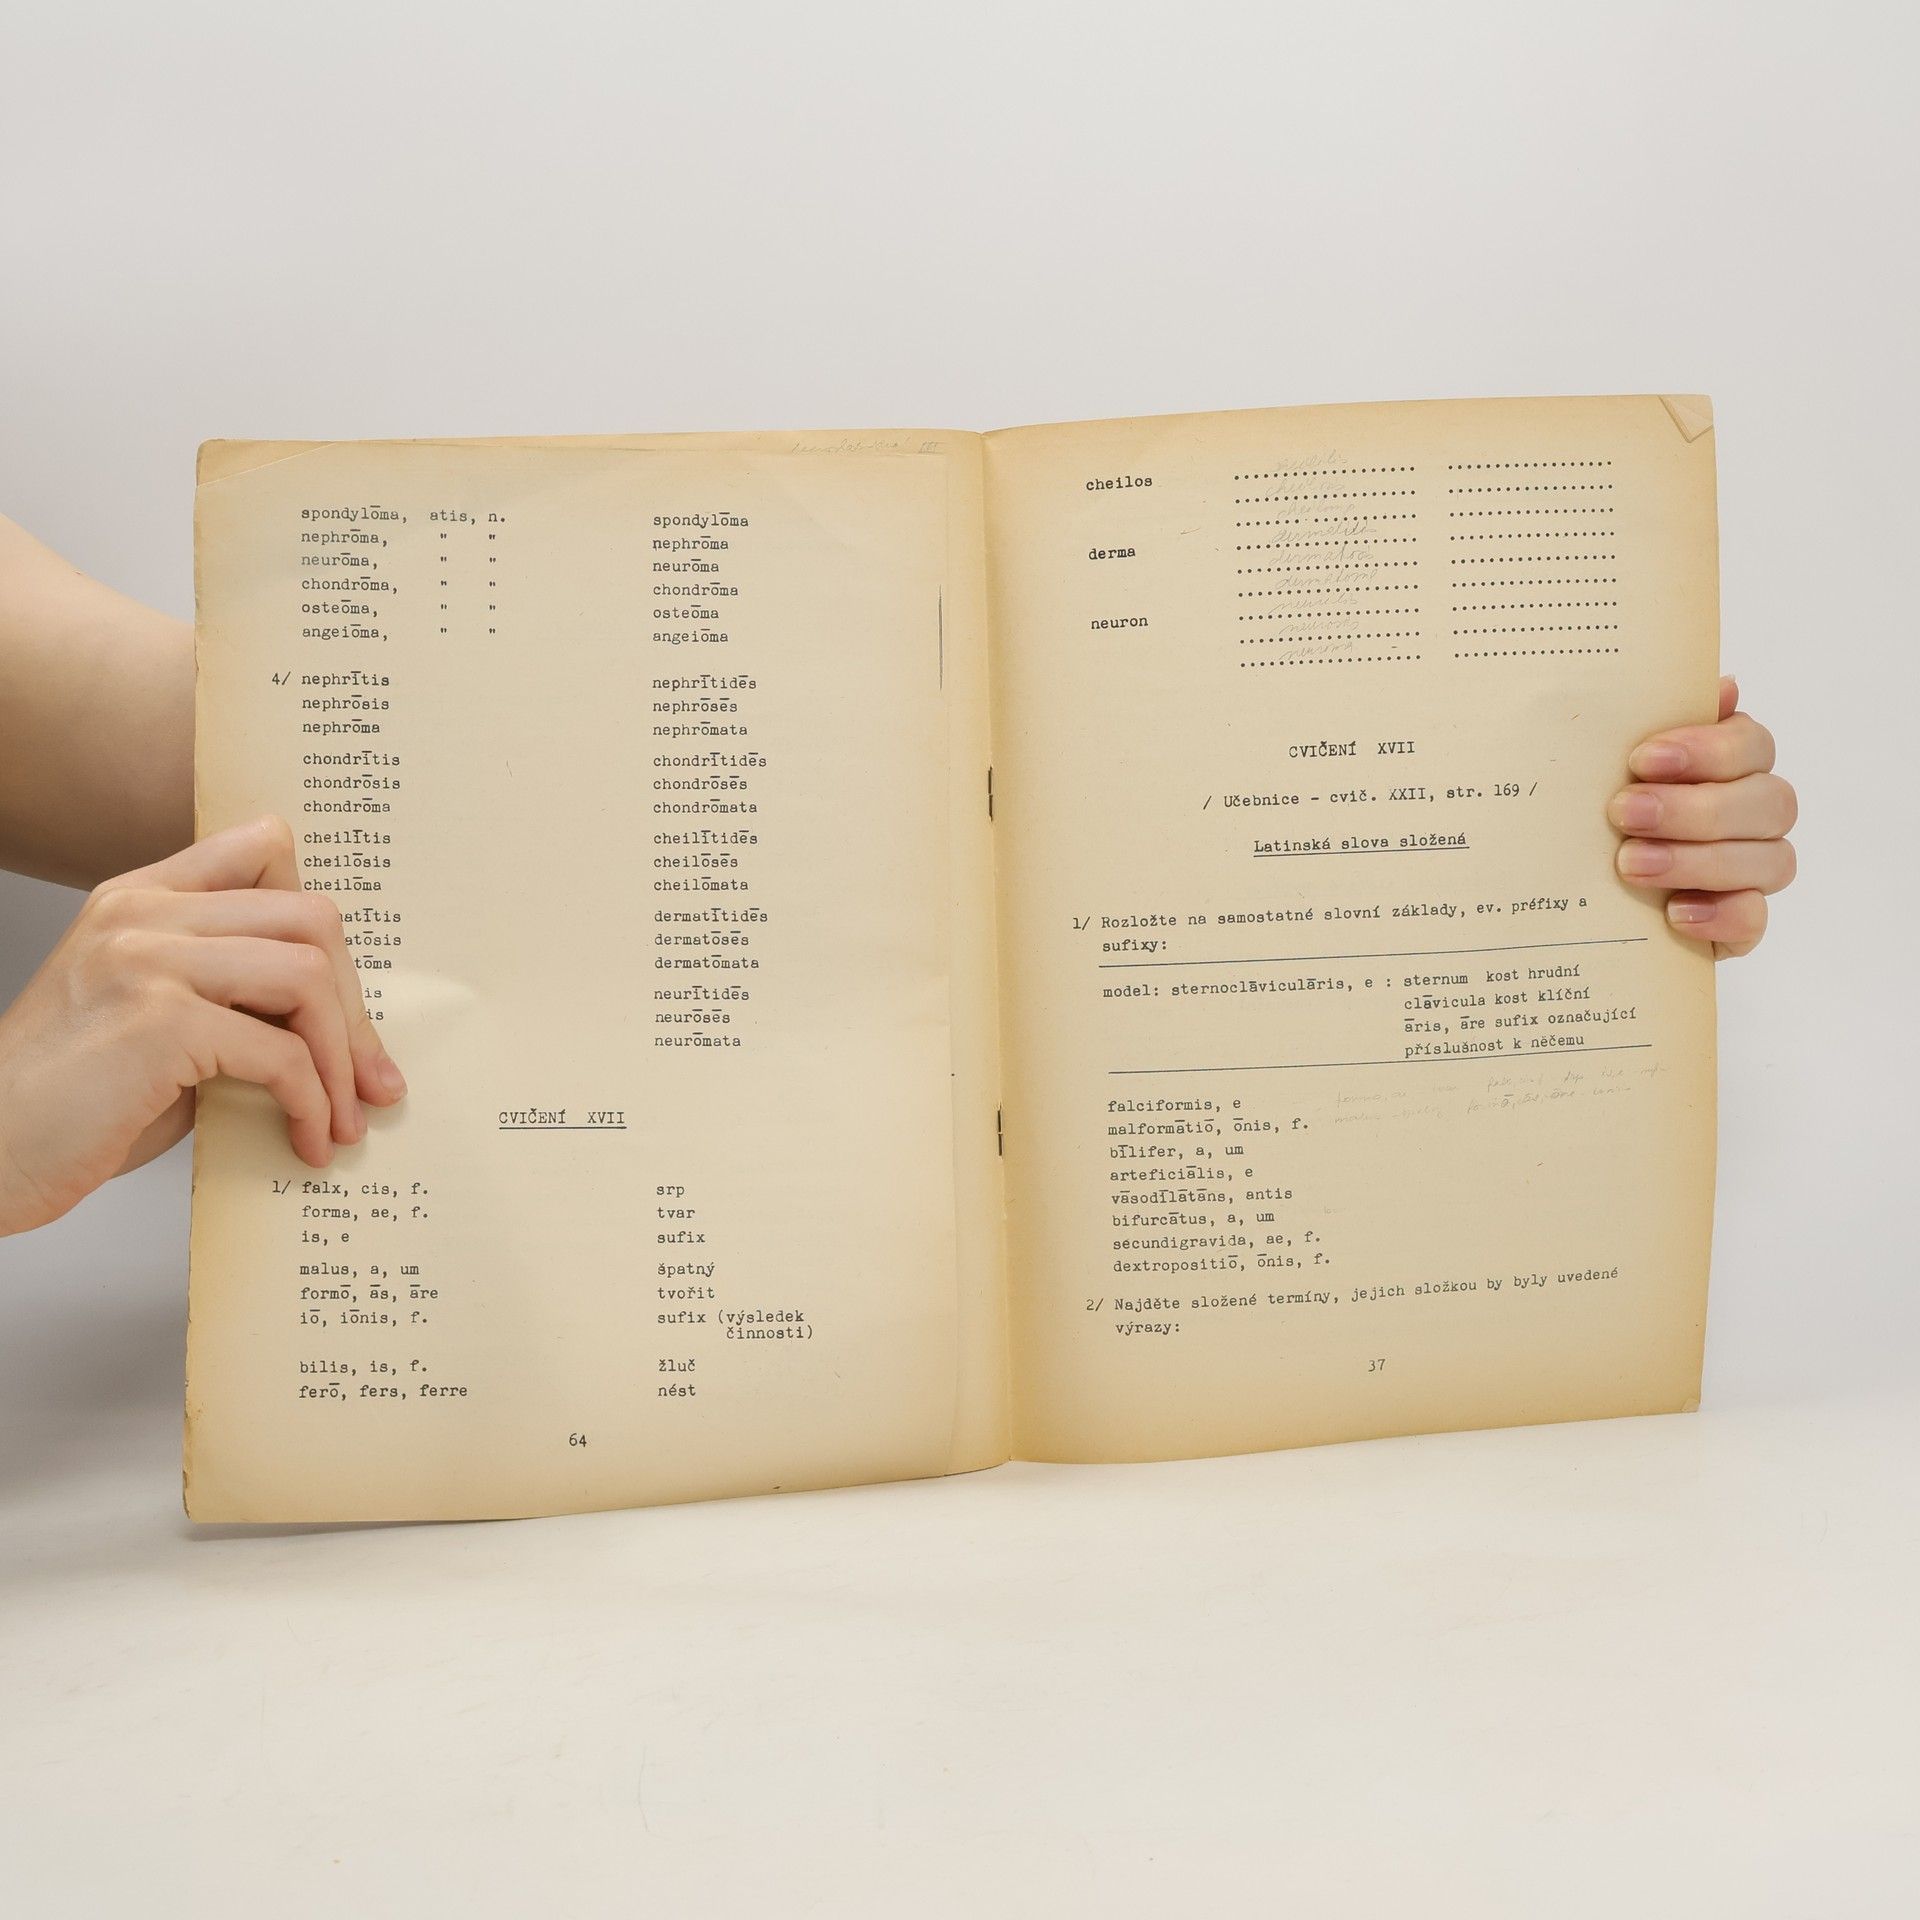 spondylōma, atis, n. spondylōma
nephrōma, " " nephrōma
neurōma, " " neurōma
chondrōma, " " chondrōma
osteōma, " " osteōma
angeiōma, " " angeiōma
4/ nephrītis nephrītidēs
nephrōsis nephrōsēs
nephrōma nephrōmata
chondrītis chondrītidēs
chondrōsis chondrōsēs
chondrōma chondrōmata
cheilītis cheilītidēs
cheilōsis cheilōsēs
cheilōma cheilōmata
atītis dermatītidēs
atōsis dermatōsēs
tōma dermatōmata
is neurītidēs
is neurōsēs
neurōmata
CVIČENÍ XVII
1/ falx, cis, f. srp
forma, ae, f. tvar
is, e sufix
malus, a, um špatný
formō, ās, āre tvořit
iō, iōnis, f. sufix (výsledek
činnosti)
bilis, is, f. žluč
ferō, fers, ferre nést
64
cheilos
derma
dermatosis
neuron
neurosis
neuroma
CVIČENÍ XVII
/ Učebnice - cvič. XXII, str. 169 /
Latinská slova složená
1/ Rozložte na samostatné slovní základy, ev. préfixy a
sufixy:
model: sternoclāviculāris, e : sternum kost hrudní
clāvicula kost klíční
āris, āre sufix označující
příslušnost k něčemu
falciformis, e
malformātiō, ōnis, f.
bīlifer, a, um
arteficiālis, e
vāsodīlātāns, antis
bifurcātus, a, um
secundigravida, ae, f.
dextropositiō, ōnis, f.
2/ Najděte složené termíny, jejich složkou by byly uvedené
výrazy:
37